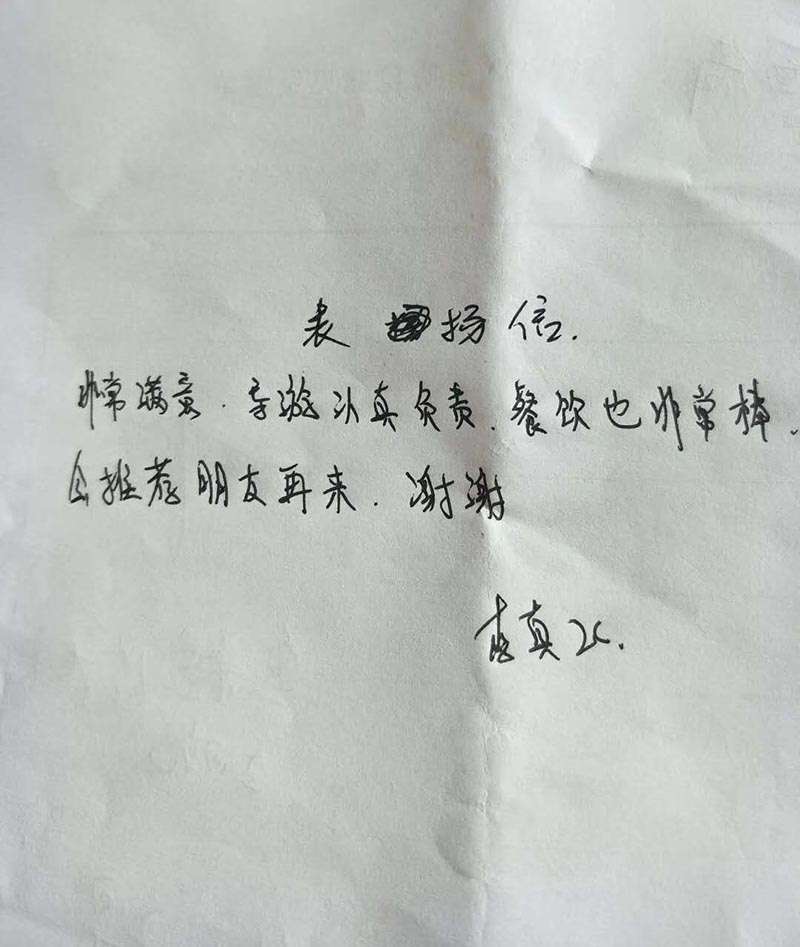 表扬信.
非常满意.导游认真负责.餐饮也非常棒.
会推荐朋友再来.谢谢
真